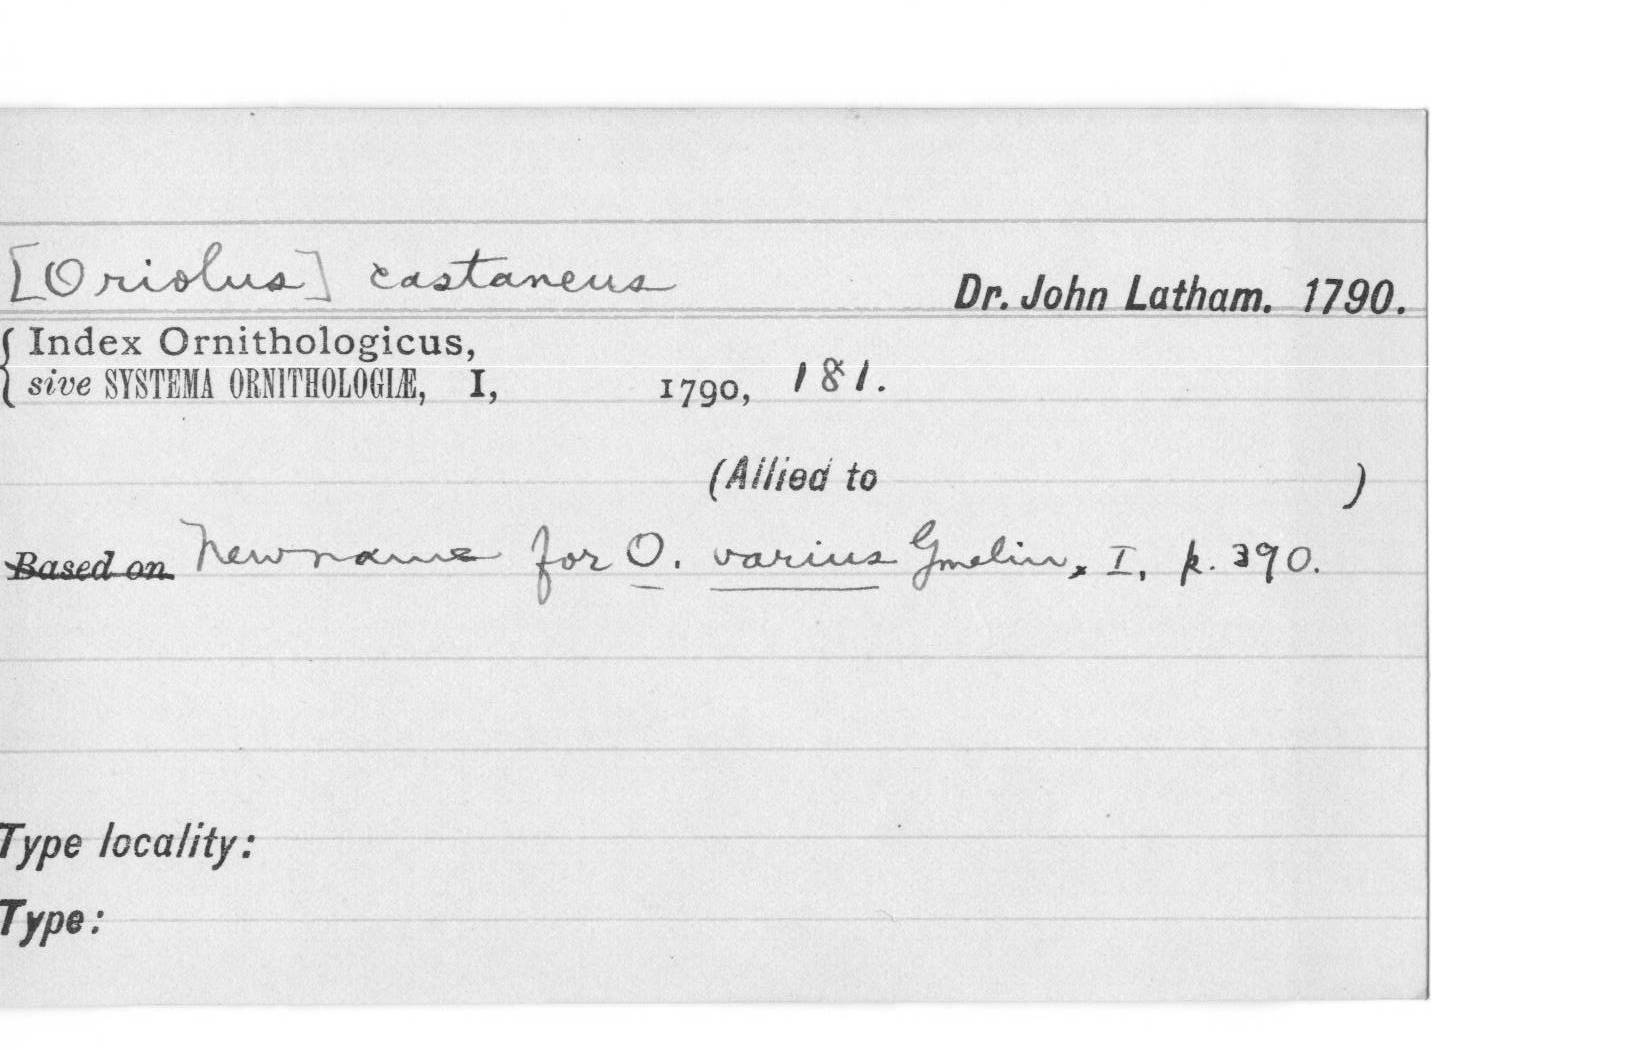 [Oriolus] castaneus Dr. John Latham. 1790.
Index Ornithologicus,
sive SYSTEMA ORNITHOLOGIÆ, I, 1790, 181.
(Allied to )
Based on New name for O. varius Gmelin, I, p. 390.
Type locality:
Type: